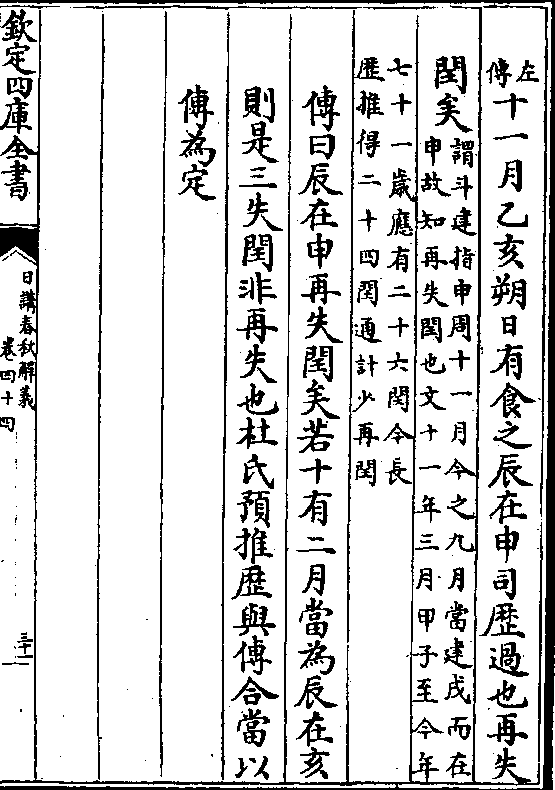 左傳十一月乙亥朔日有食之辰在申司歴過也再失
閏矣
謂斗建指申周十一月今之九月當建戌而在
申故知再失閏也文十一年三月甲子至今年
七十一歲應有二十六閏今長
歴推得二十四閏通計少再閏
傳曰辰在申再失閏矣若十有二月當為辰在亥
則是三失閏非再失也杜氏預推歴與傳合當以
傳為定
欽定四庫全書
日講春秋解義
卷四十四